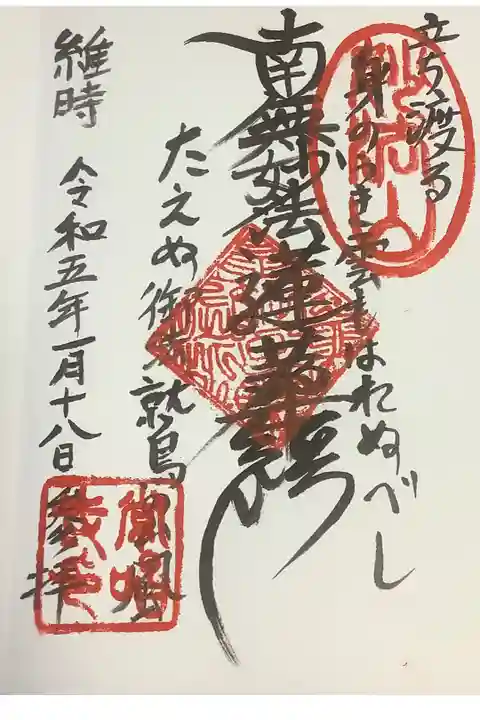 立ち渡る
身のうき雲もはれぬべし
南無妙法蓮華経
たえぬ御 鷲 風
維時 令和五年一月十八日 参拝